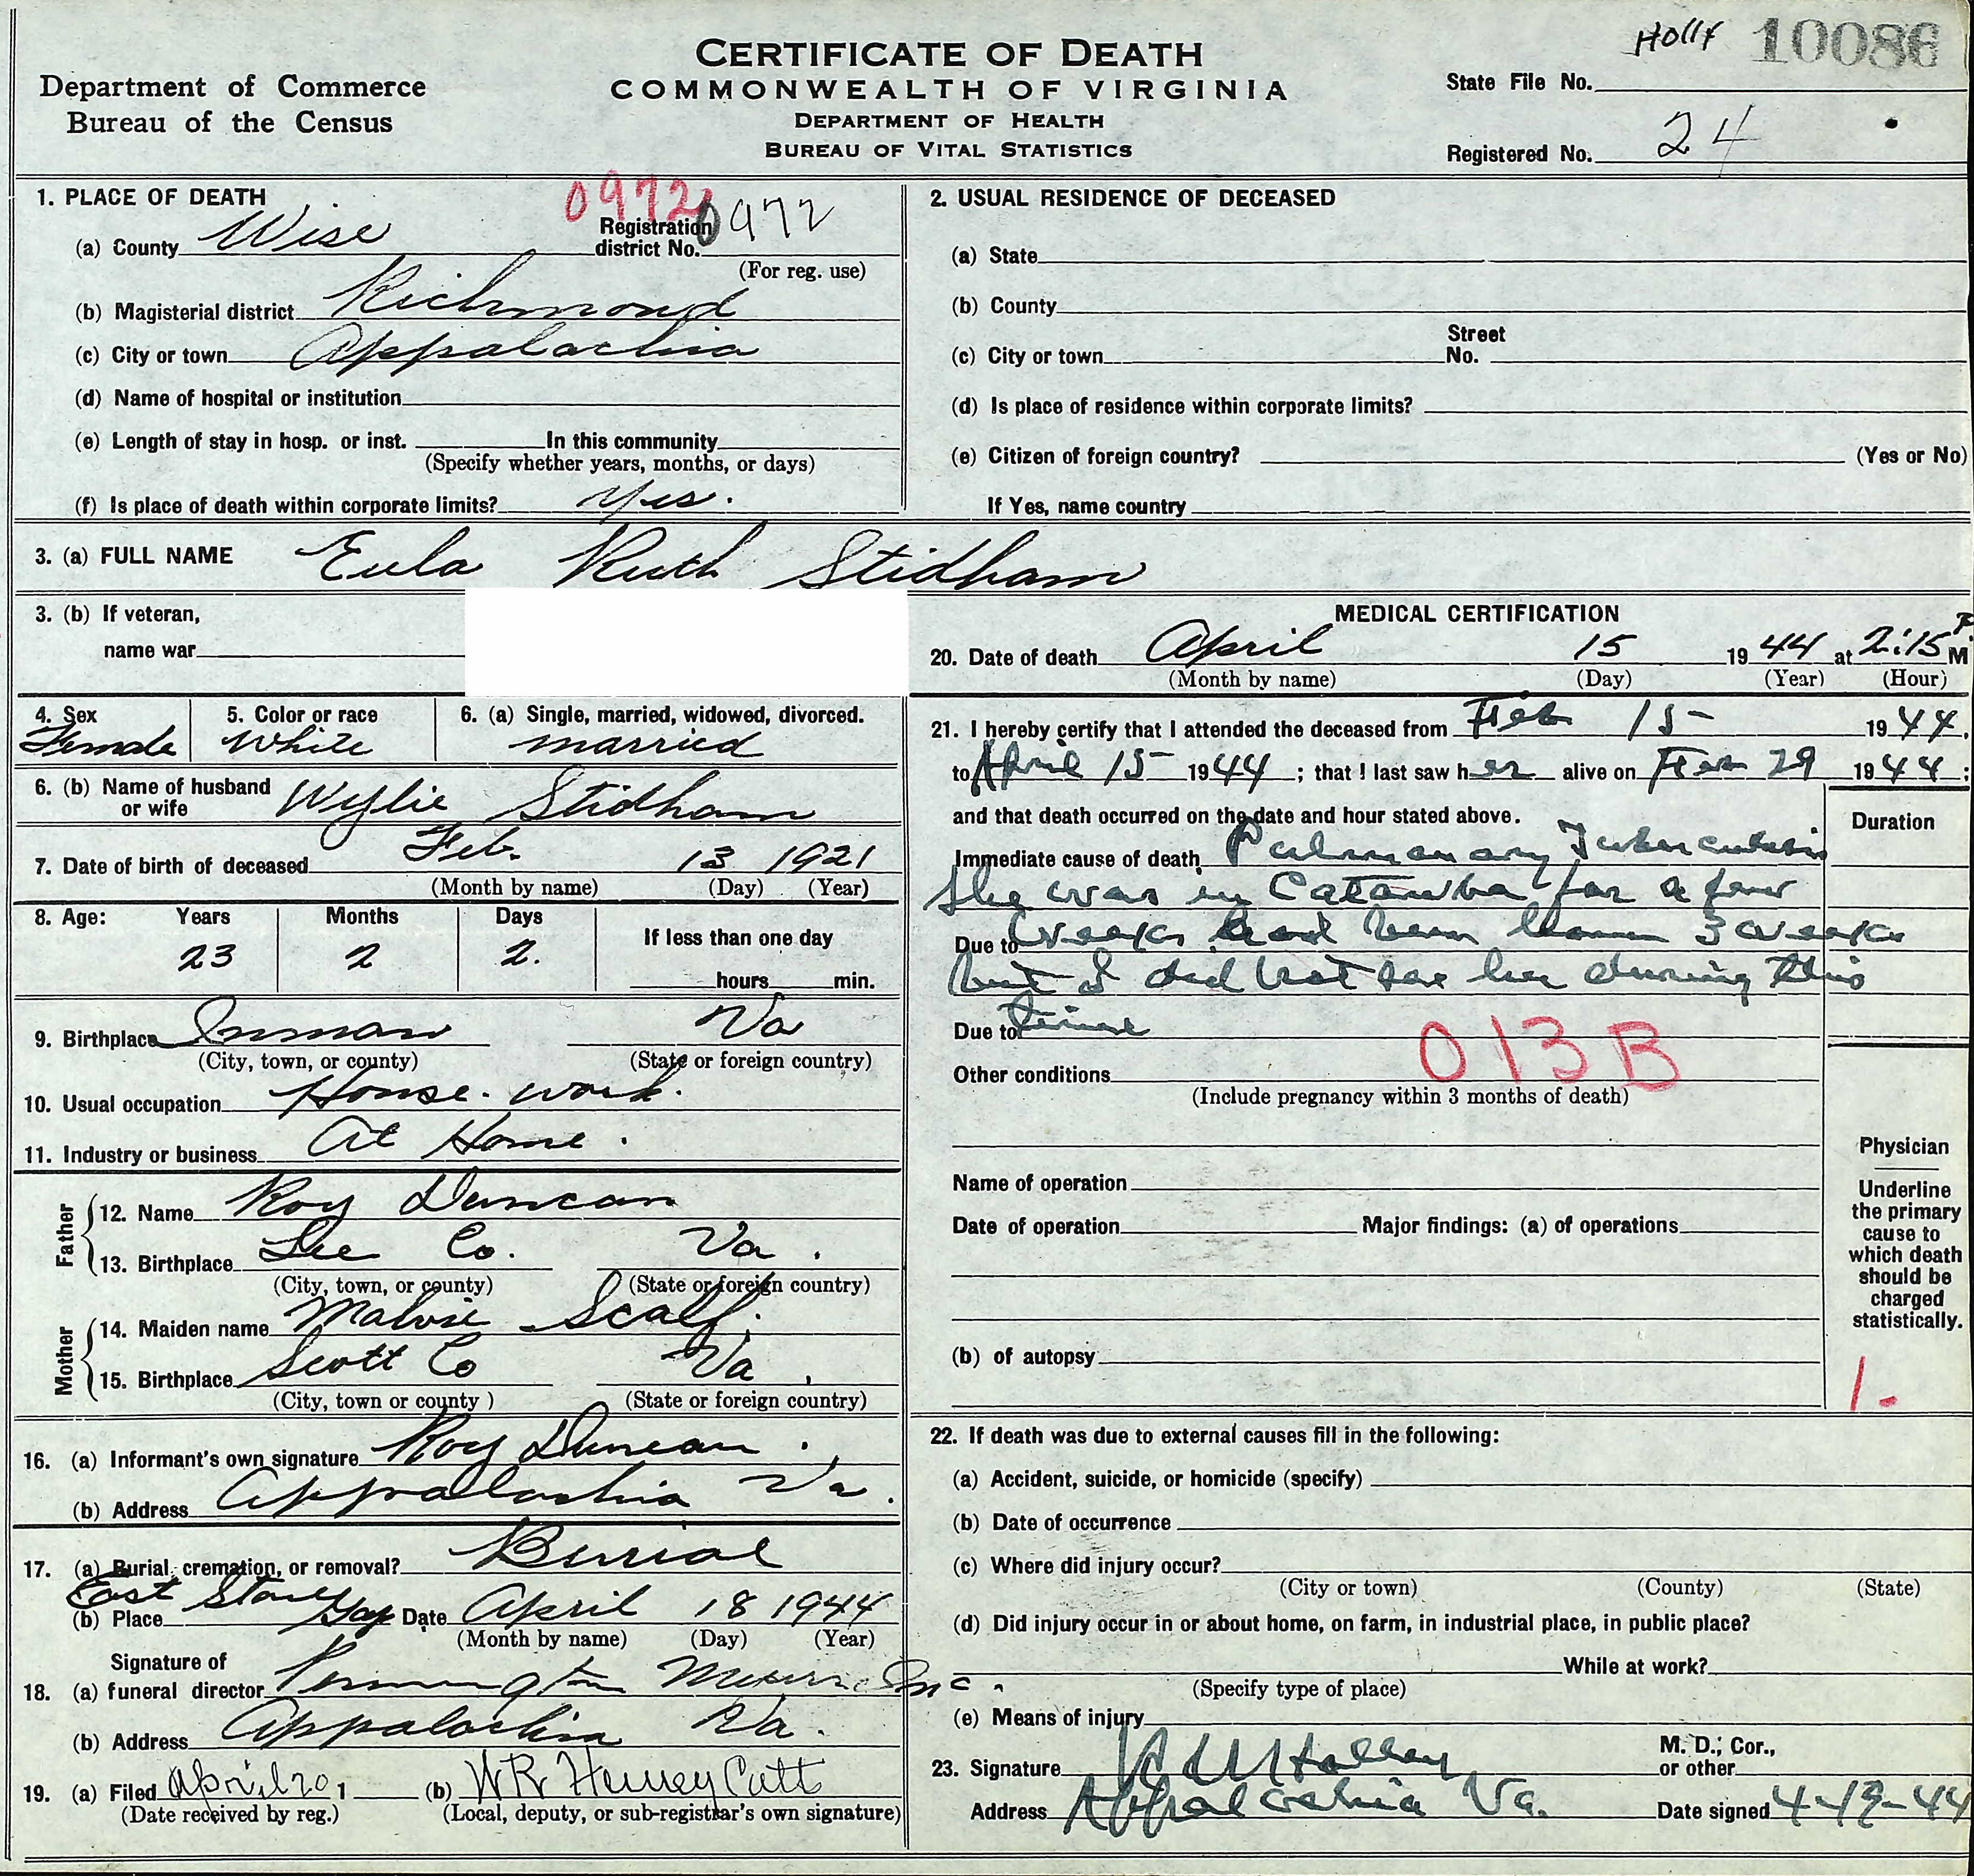 Holly 10086
CERTIFICATE OF DEATH
COMMONWEALTH OF VIRGINIA
DEPARTMENT OF HEALTH
BUREAU OF VITAL STATISTICS
Department of Commerce
Bureau of the Census
State File No.
Registered No. 24
1. PLACE OF DEATH
0972
(a) County Wise Registration district No. 0972
(For reg. use)
(b) Magisterial district Richmond
(c) City or town Appalachia
(d) Name of hospital or institution
(e) Length of stay in hosp. or inst. In this community
(Specify whether years, months, or days)
(f) Is place of death within corporate limits? Yes.
2. USUAL RESIDENCE OF DECEASED
(a) State
(b) County
(c) City or town Street No.
(d) Is place of residence within corporate limits?
(e) Citizen of foreign country? (Yes or No)
If Yes, name country
3. (a) FULL NAME Eula Ruth Stidham
3. (b) If veteran,
name war
4. Sex 5. Color or race 6. (a) Single, married, widowed, divorced.
Female White married
6. (b) Name of husband or wife Wylie Stidham
7. Date of birth of deceased Feb. 13 1921
(Month by name) (Day) (Year)
8. Age: Years Months Days If less than one day
23 2 2. hours min.
9. Birthplace Inman Va
(City, town, or county) (State or foreign country)
10. Usual occupation House-work.
11. Industry or business At Home.
Father
12. Name Roy Duncan
13. Birthplace Lee Co. Va.
(City, town, or county) (State or foreign country)
Mother
14. Maiden name Malvie Scalf.
15. Birthplace Scott Co Va.
(City, town or county ) (State or foreign country)
16. (a) Informant's own signature Roy Duncan.
(b) Address Appalachia Va.
17. (a) Burial, cremation, or removal? Burial
(b) Place East Stone Gap Date April 18 1944
(Month by name) (Day) (Year)
18. (a) Signature of funeral director Pennington Inc.
(b) Address Appalachia Va.
19. (a) Filed April 20 1 (b) W R
(Date received by reg.) (Local, deputy, or sub-registrar's own signature)
MEDICAL CERTIFICATION
20. Date of death April 15 1944 at 2:15 P. M
(Month by name) (Day) (Year) (Hour)
21. I hereby certify that I attended the deceased from Feb 15 1944,
to April 15 1944; that I last saw her alive on Feb 29 1944;
and that death occurred on the date and hour stated above.
Duration
Immediate cause of death Pulmonary Tuberculosis
She was in Catawba for a few
Due to weeks had been home 3 weeks
but I did not see her during this
Due to time
013B
Other conditions
(Include pregnancy within 3 months of death)
Name of operation
Date of operation Major findings: (a) of operations
(b) of autopsy
Physician
Underline
the primary
cause to
which death
should be
charged
statistically.
1-
22. If death was due to external causes fill in the following:
(a) Accident, suicide, or homicide (specify)
(b) Date of occurrence
(c) Where did injury occur?
(City or town) (County) (State)
(d) Did injury occur in or about home, on farm, in industrial place, in public place?
While at work?
(Specify type of place)
(e) Means of injury
23. Signature Holley M. D., Cor., or other
Address Appalachia Va. Date signed 4-19-44